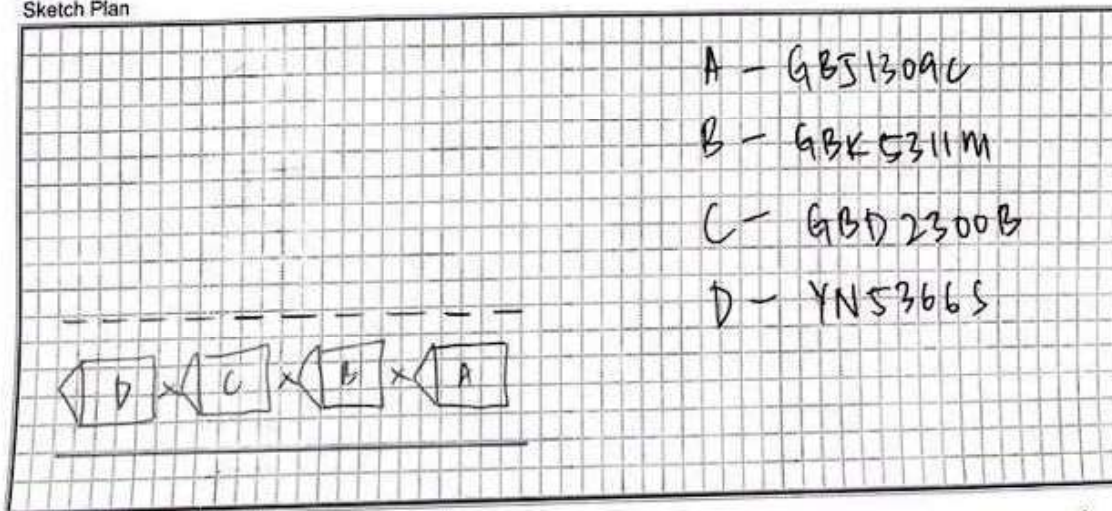 Sketch Plan
A - GBJ1309C
B - GBK5311M
C - GBD2300B
D - YN5366S
D x C x B x A